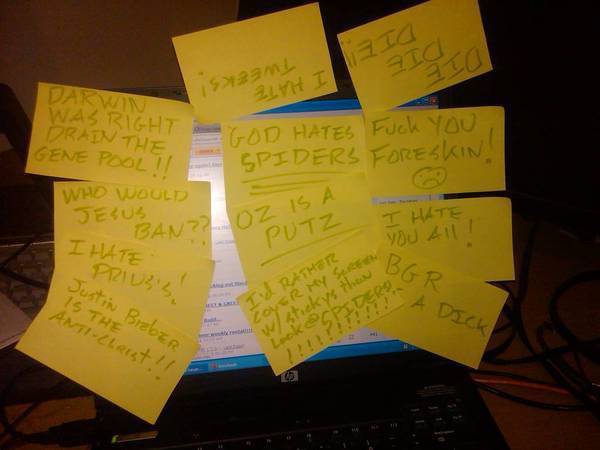 I HATE
TWEEKS!
DIE
DIE
DIE!!
DARWIN
WAS RIGHT
DRAIN THE
GENE POOL!!
GOD HATES
SPIDERS
FUCK YOU
FORESKIN!
WHO WOULD
JESUS
BAN??
OZ IS A
PUTZ
I HATE
YOU All!
I HATE
PRIUS'S!
Justin Bieber
IS THE
ANTI-Christ!!
I'd RATHER
COVER MY SCREEN
W/ stickys then
Look @ SPIDERS
BGR
A DICK
hp